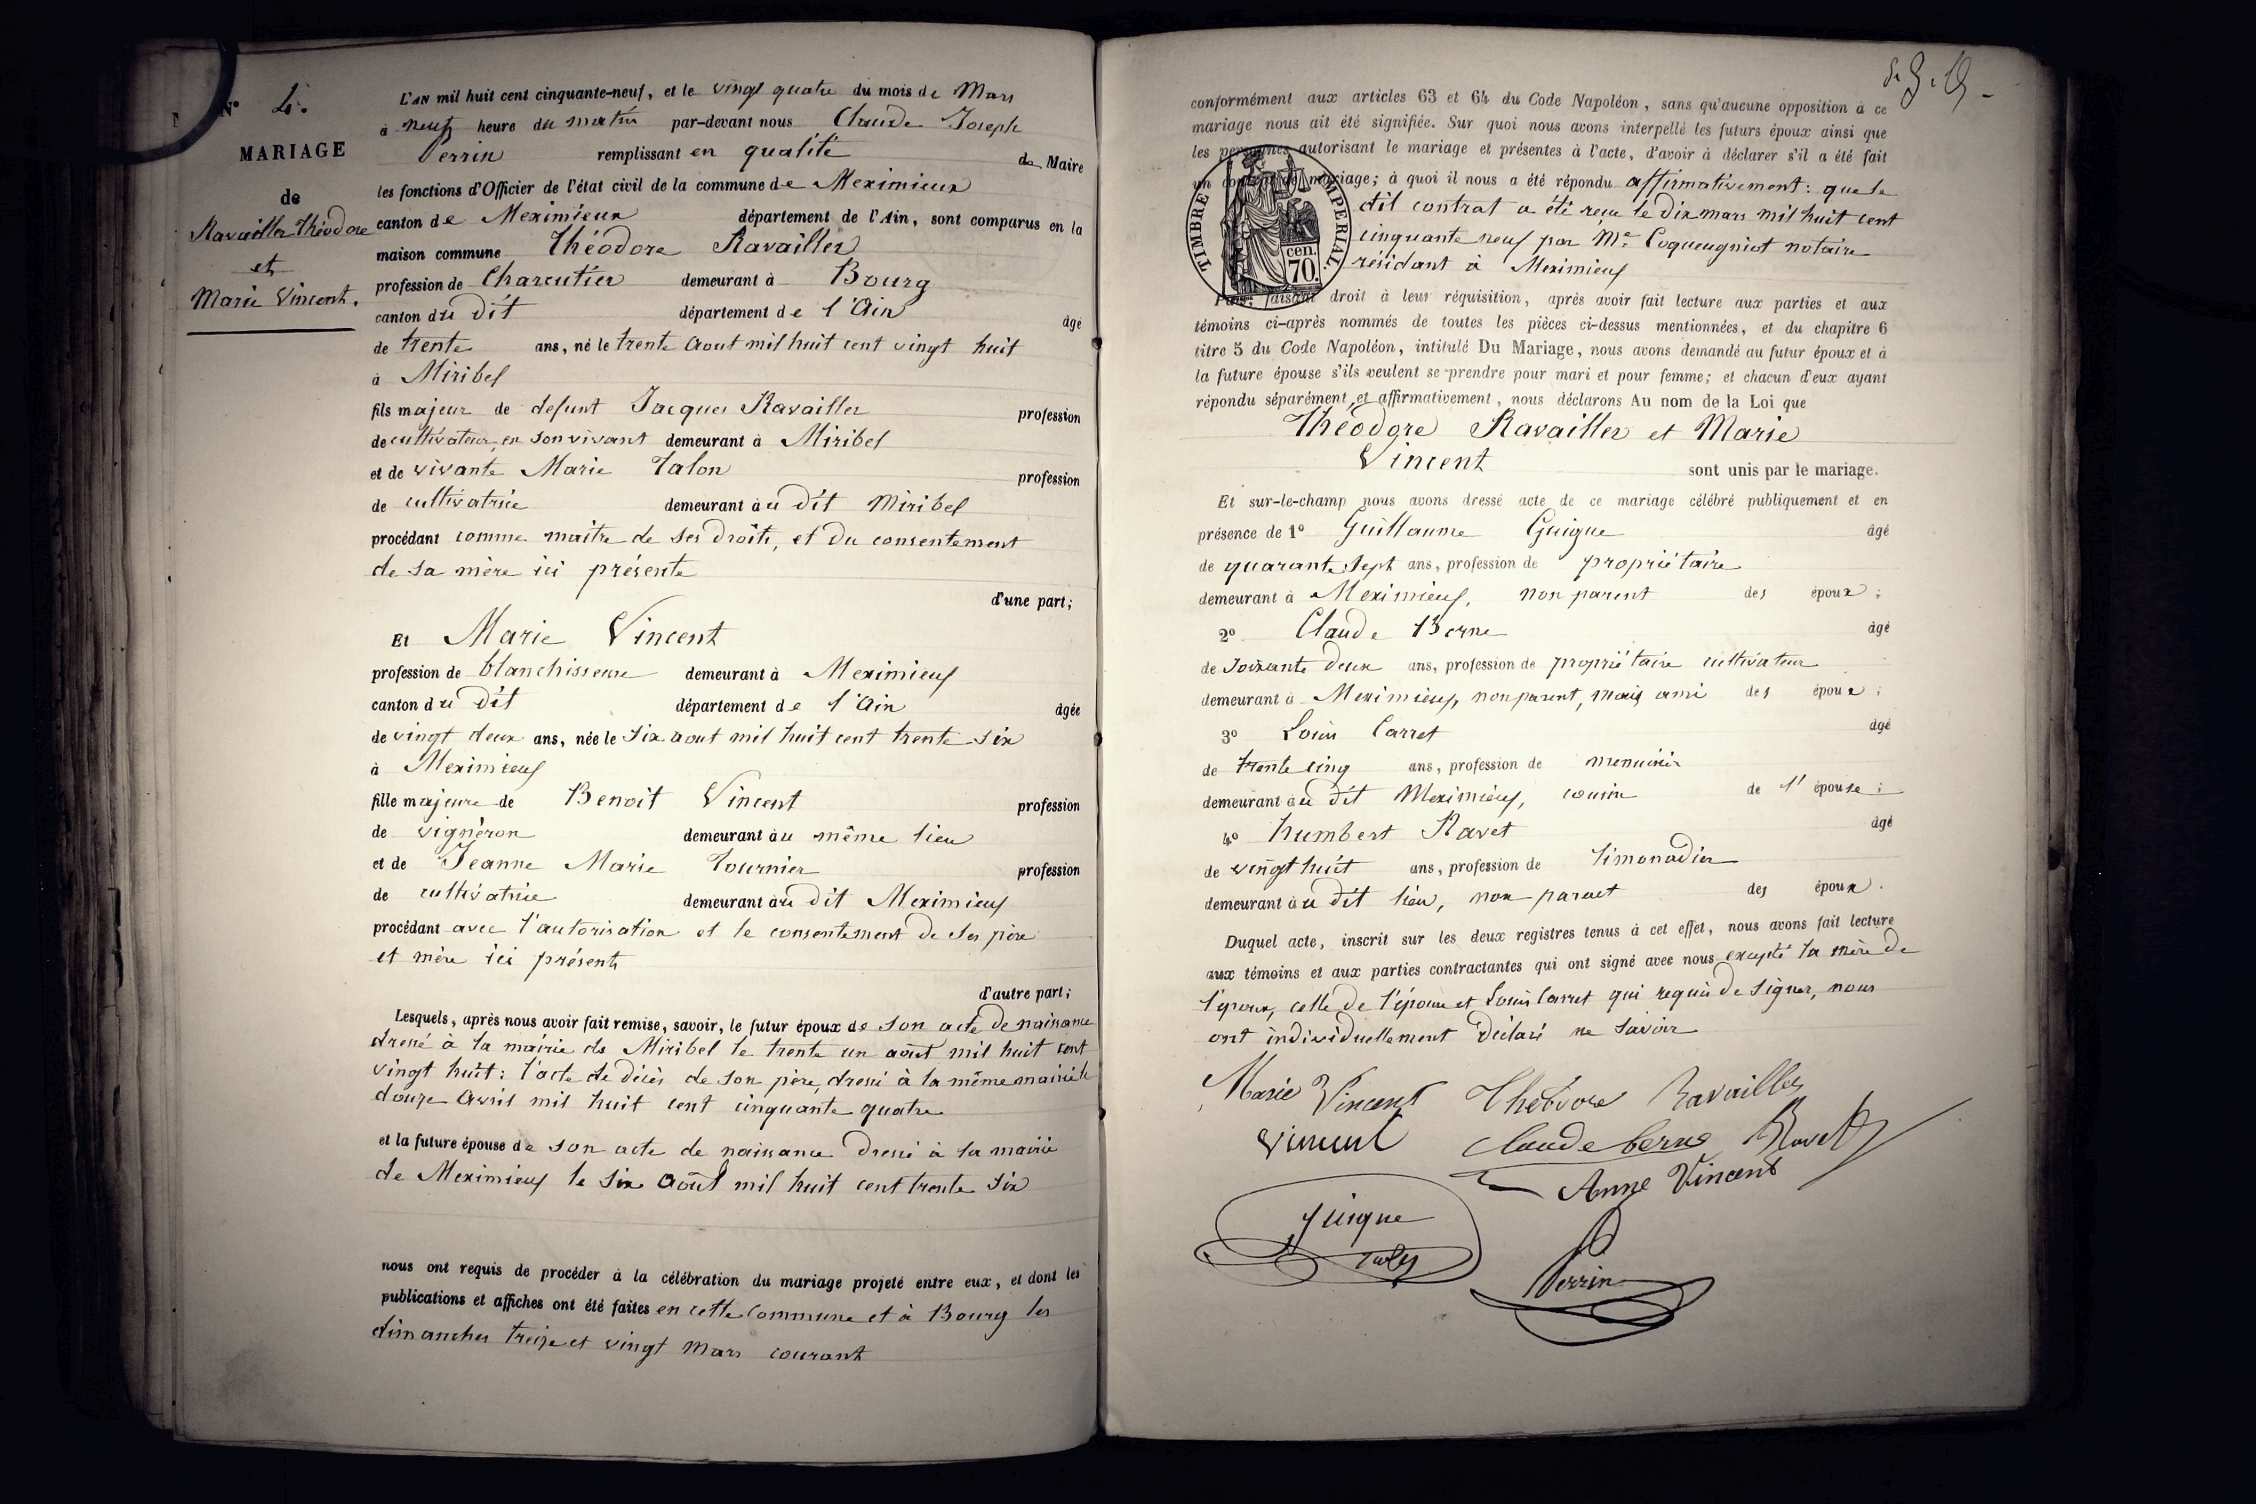 N° 4.
MARIAGE
de
Ravailler Théodore
et
Marie Vincent.
L'AN mil huit cent cinquante-neuf, et le vingt quatre du mois de Mars
à neuf heure du matin par-devant nous Claude Joseph
Perrin remplissant en qualité de Maire
les fonctions d'Officier de l'état civil de la commune de Meximieux
canton de Meximieux département de l'Ain, sont comparus en la
maison commune Théodore Ravailler
profession de Charcutier demeurant à Bourg
canton du dit département de l'Ain âgé
de trente ans, né le trente Aout mil huit cent vingt huit
à Miribel
fils majeur de defunt Jacques Ravailler profession
de cultivateur en son vivant demeurant à Miribel
et de vivante Marie Talon profession
de cultivatrice demeurant au dit Miribel
procédant comme maitre de ses droits, et du consentement
de sa mère ici présente
d'une part;
Et Marie Vincent
profession de blanchisseuse demeurant à Meximieux
canton du dit département de l'Ain âgée
de vingt deux ans, née le six aout mil huit cent trente six
à Meximieux
fille majeure de Benoit Vincent profession
de vigneron demeurant au même lieu
et de Jeanne Marie Tournier profession
de cultivatrice demeurant au dit Meximieux
procédant avec l'autorisation et le consentement de ses père
et mère ici présents
d'autre part;
Lesquels, après nous avoir fait remise, savoir, le futur époux de son acte de naissance
dressé à la mairie de Miribel le trente un août mil huit cent
vingt huit: l'acte de décès de son père, dressé à la même mairie le
douze Avril mil huit cent cinquante quatre
et la future épouse de son acte de naissance dressé à la mairie
de Meximieux le six Août mil huit cent trente six
nous ont requis de procéder à la célébration du mariage projeté entre eux, et dont les
publications et affiches ont été faites en cette Commune et à Bourg les
dimanches treize et vingt Mars courant
conformément aux articles 63 et 64 du Code Napoléon, sans qu'aucune opposition à ce
mariage nous ait été signifiée. Sur quoi nous avons interpellé les futurs époux ainsi que
les personnes autorisant le mariage et présentes à l'acte, d'avoir à déclarer s'il a été fait
un contrat de mariage; à quoi il nous a été répondu affirmativement: que le
dit contrat a été reçu le dix mars mil huit cent
cinquante neuf par Me. Coqueugniot notaire
résidant à Meximieux
TIMBRE IMPERIAL.
cen.
70.
Puis, faisant droit à leur réquisition, après avoir fait lecture aux parties et aux
témoins ci-après nommés de toutes les pièces ci-dessus mentionnées, et du chapitre 6
titre 5 du Code Napoléon, intitulé Du Mariage, nous avons demandé au futur époux et à
la future épouse s'ils veulent se prendre pour mari et pour femme; et chacun d'eux ayant
répondu séparément et affirmativement, nous déclarons Au nom de la Loi que
Théodore Ravailler et Marie
Vincent sont unis par le mariage.
Et sur-le-champ nous avons dressé acte de ce mariage célébré publiquement et en
présence de 1° Guillaume Guigue âgé
de quarante sept ans, profession de propriétaire
demeurant à Meximieux, non parent des époux;
2° Claude Berne âgé
de soixante deux ans, profession de propriétaire cultivateur
demeurant à Meximieux, non parent, mais ami des époux;
3° Louis Carret âgé
de trente cinq ans, profession de menuisier
demeurant au dit Meximieux, cousin de l'épouse;
4° humbert Ravet âgé
de vingt huit ans, profession de limonadier
demeurant au dit lieu, non parent des époux.
Duquel acte, inscrit sur les deux registres tenus à cet effet, nous avons fait lecture
aux témoins et aux parties contractantes qui ont signé avec nous excepté la mère de
l'époux, celle de l'épouse et Louis Carret qui requis de signer, nous
ont individuellement déclaré ne savoir
Marie Vincent Théodore Ravailler
Vincent Claude berne Ravet
Anne Vincent
Guigue
Perrin